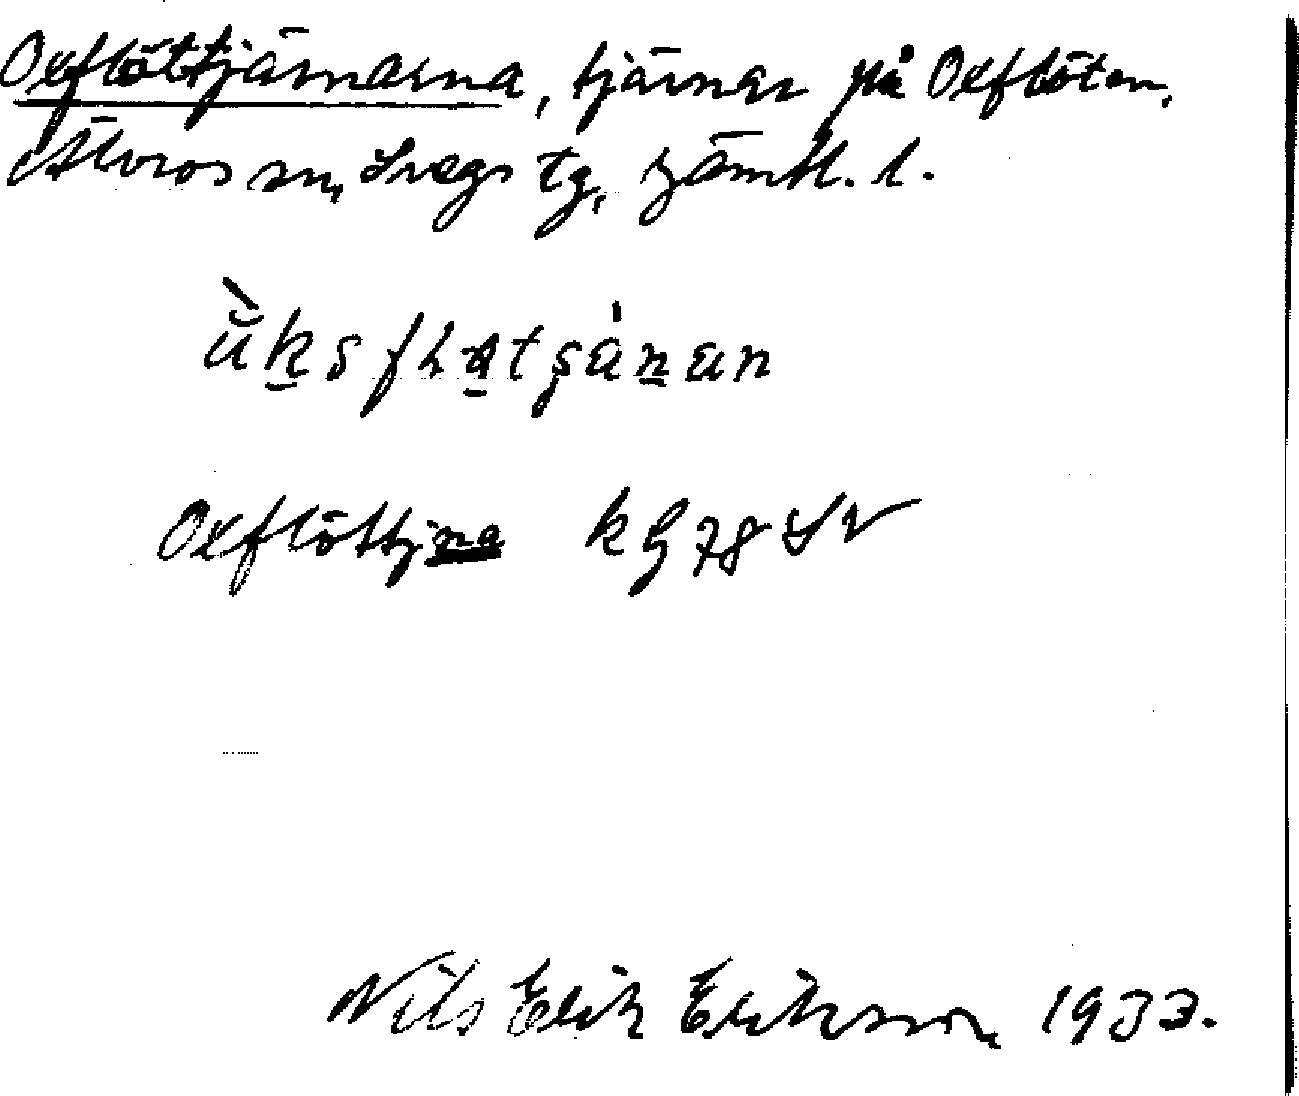 Oxflöttjärnarna, tjärnar på Oxflöten,
Älvros sn, Svegs tg, Jämtl. l.
Oxflöttjna kg 78 SV
Nils Erik Eriksson 1933.